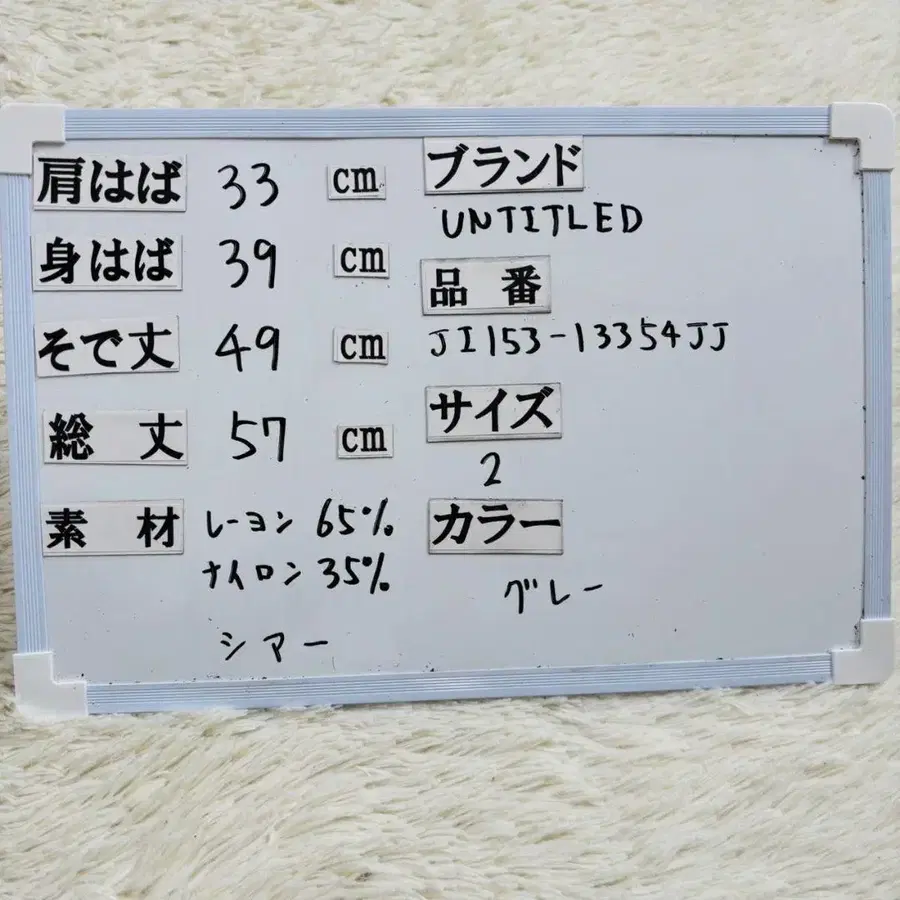 肩はば 33 cm
身はば 39 cm
そで丈 49 cm
総丈 57 cm
素材 レーヨン 65%
ナイロン 35%
シアー
ブランド
UNTITLED
品番
JI153-13354JJ
サイズ
2
カラー
グレー